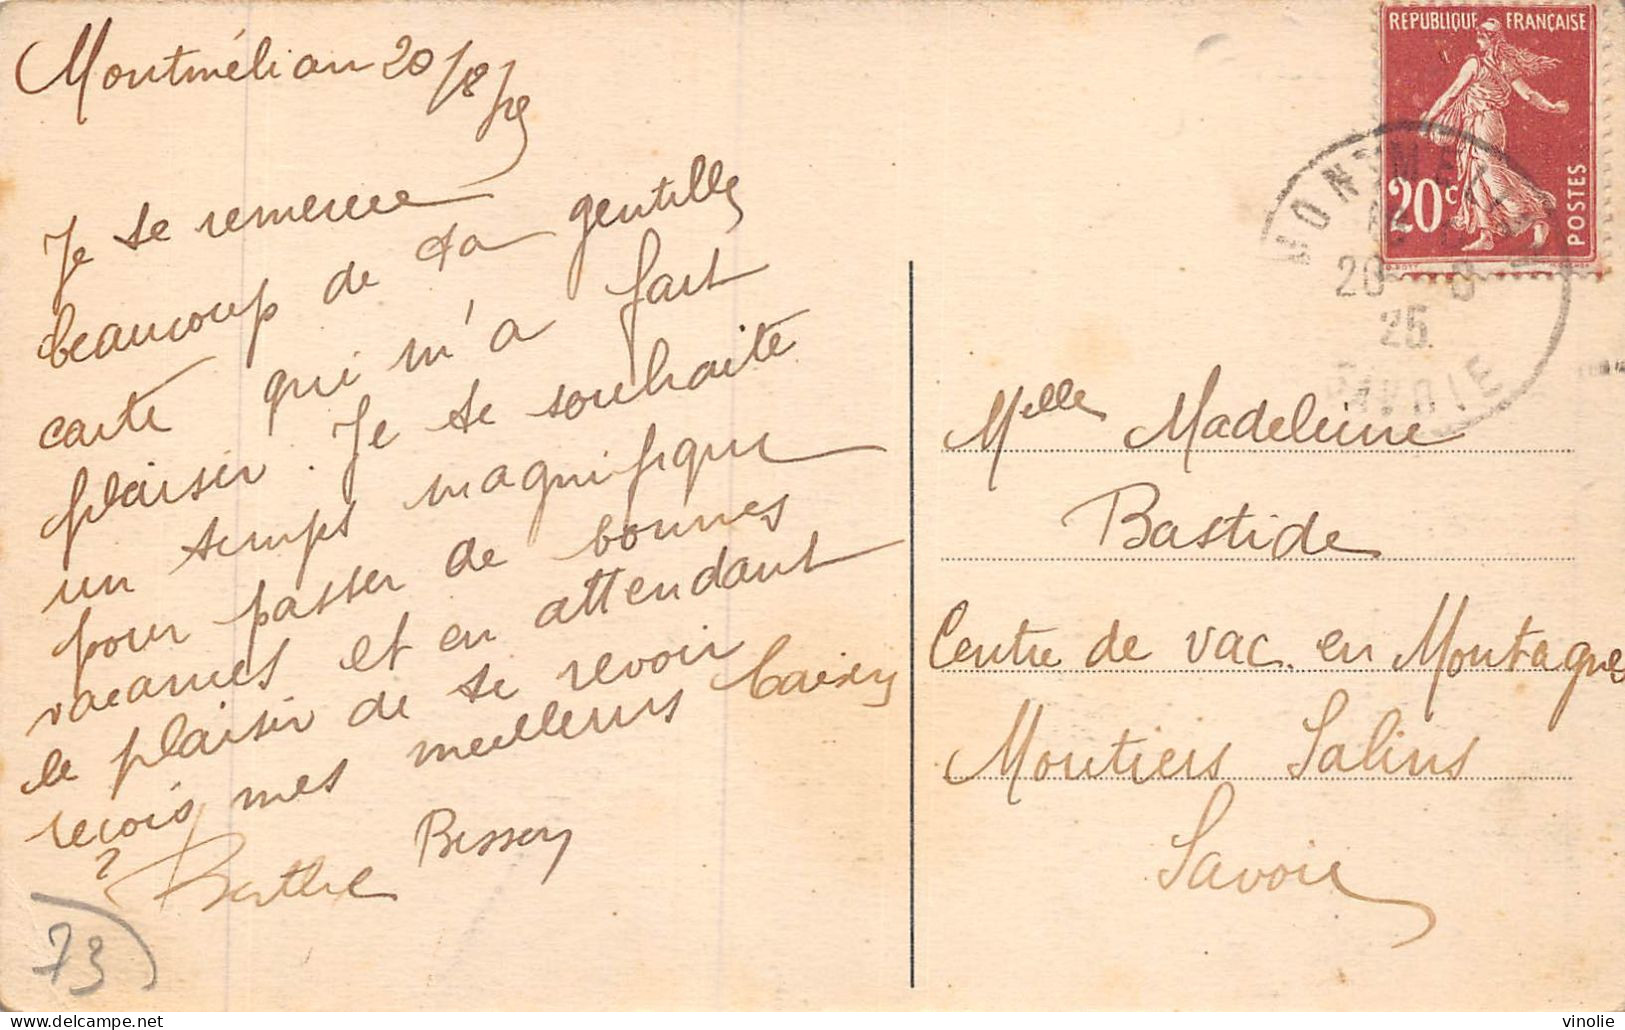 Montmélian 20/8/25
Je te remercie
beaucoup de ta gentille
carte qui m'a fait
plaisir. Je te souhaite
un temps magnifique
pour passer de bonnes
vacances et en attendant
le plaisir de te revoir
reçois mes meilleurs baisers
Berthe Bisson
73
REPUBLIQUE FRANÇAISE
20c
POSTES
MONTMELIAN
20
25
SAVOIE
Mlle Madeleine
Bastide
Centre de vac. en Montagne
Moutiers Salins
Savoie
delcampe.net
vinolie